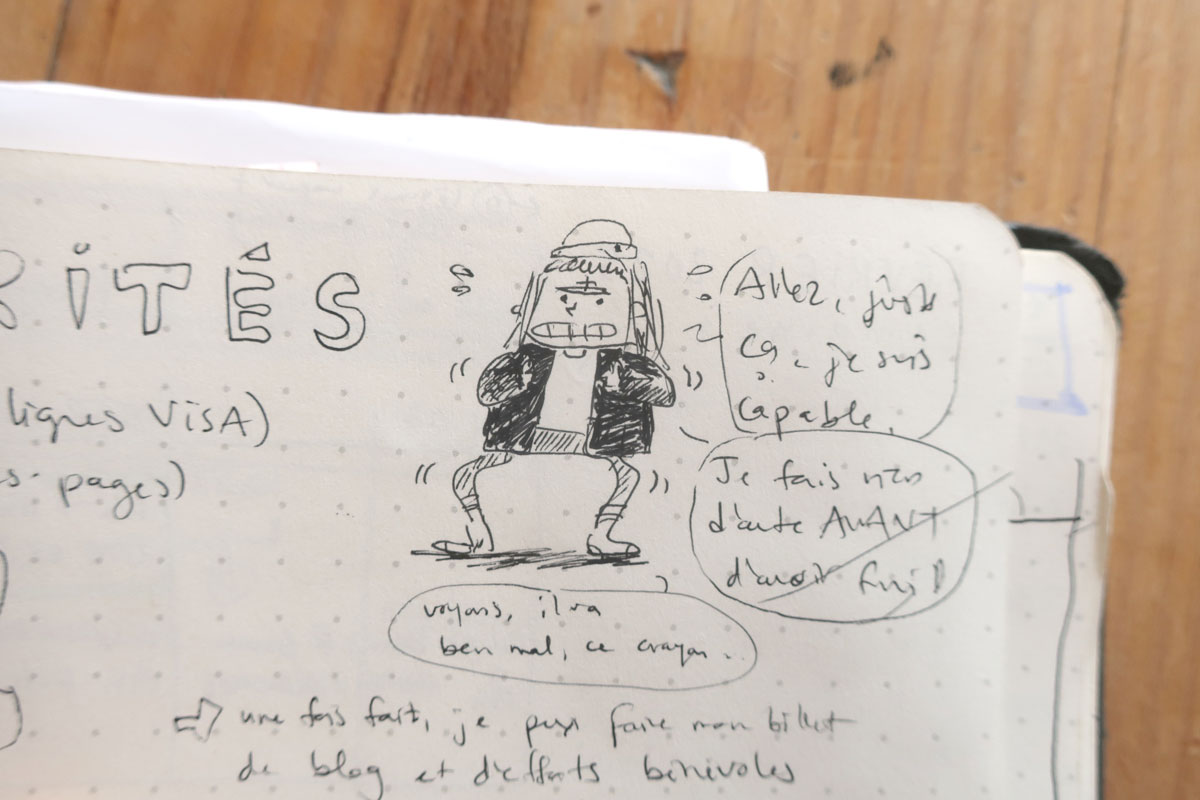 RiTÉS
lignes ViSA)
s-pages)
Allez, juste
ça, je suis
capable.
Je fais rien
d'autre AVANT
d'avoir fini!
voyons, il va
ben mal, ce crayon..
⇒ une fois fait, je peux faire mon billet
de blog et d'efforts bénévoles